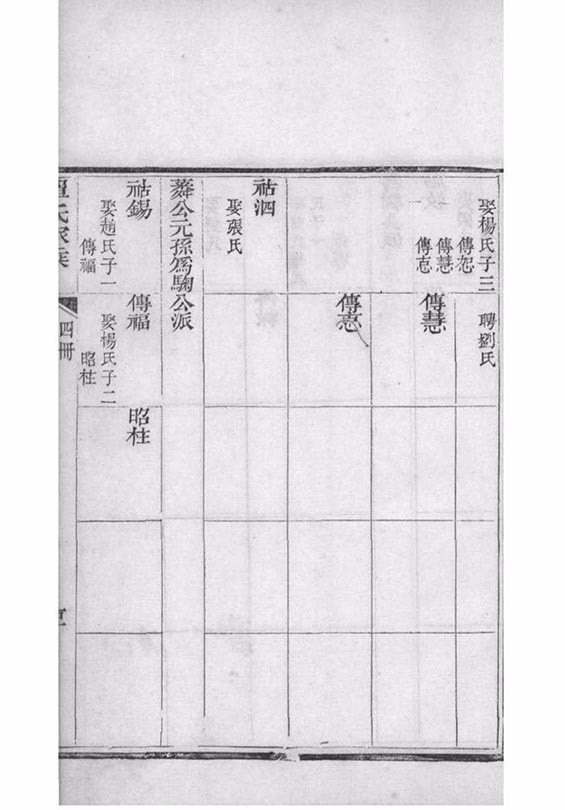 娶楊氏子三
傳恕
傳慧
傳志
聘劉氏
傳慧
傳志
祜泗
娶張氏
公元孫為騊公派
祜錫
娶趙氏子一
傳福
傳福
娶楊氏子二
昭柱
昭柱
氏家乘
四冊